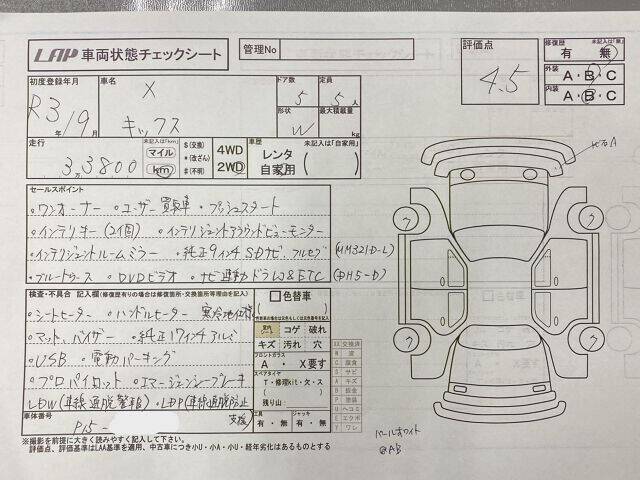 LAP 車両状態チェックシート
管理No
評価点
4.5
修復歴 未記入は「無」
有 無
外装 A・B・C
内装 A・B・C
初度登録年月
R3年/9月
車名
X
キックス
ドア数
5
定員
5人
形状
W
最大積載量
kg
走行 未記入は「km」
3万3800
マイル
km
$(交換)
*(改ざん)
#(不明)
4WD
2WD
車歴 未記入は「自家用」
レンタ
自家用
セールスポイント
・ワンオーナー ・ユーザー買取車 ・プッシュスタート
・インテリキー(2個) ・インテリジェントアラウンドビューモニター
・インテリジェントルームミラー ・純正9インチSDナビ、フルセグ(MM321D-L)
・ブルートゥース ・DVDビデオ ・ナビ連動ドラレコ&ETC(DH5-D)
検査・不具合 記入欄(修復歴有りの場合は修復箇所・交換箇所等理由を記入)
・シートヒーター ・ハンドルヒーター 寒冷地仕様
・マット、バイザー ・純正17インチアルミ
・USB ・電動パーキング
・プロパイロット ・エマージェンシーブレーキ
LDW(車線逸脱警報)・LDP(車線逸脱防止支援)
色替車
コゲ・破れ
キズ・汚れ・穴
フロントガラス
A ・ X要す
スペアタイヤ
T・修理kit・欠・ス
残り山:
工具
有・無
ジャッキ
有・無
車体番号
P15-
※撮影を前提に大きく読みやすく記入して下さい。
評価点、評価基準はLAA基準を適用、中古車につき小U・小A・小U・経年劣化はあるものとする
XX 交換済
W 波
C 腐食
S サビ
A キズ
B 板金
P 塗装
U ヘコミ
E エクボ
Y ワレ
パールホワイト
QAB